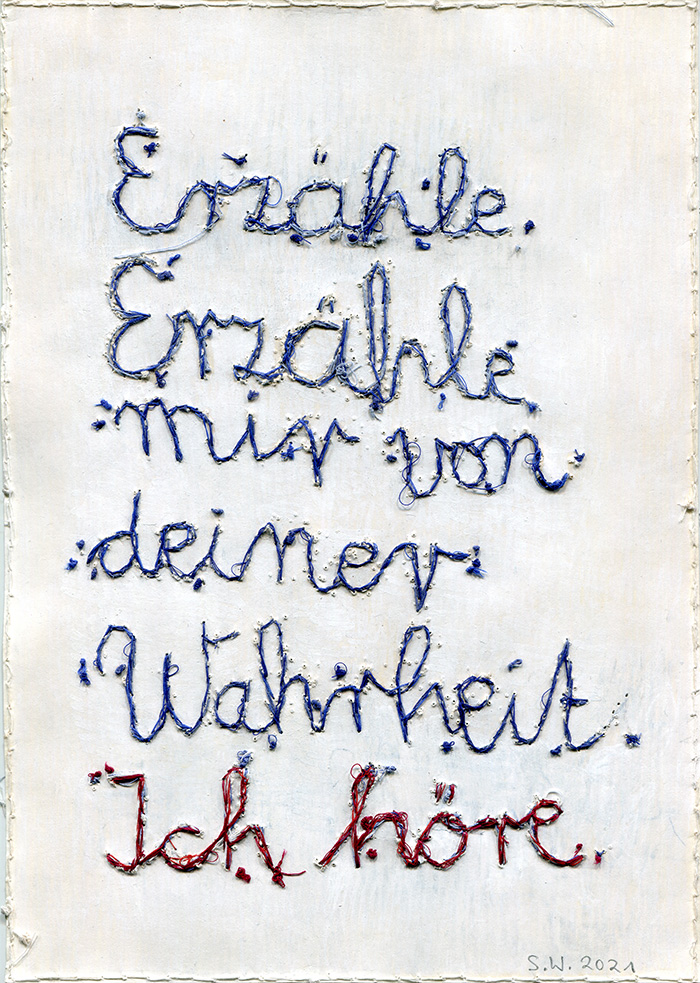 Erzähle.
Erzähle
mir von
deiner
Wahrheit.
Ich höre.
S.W. 2021